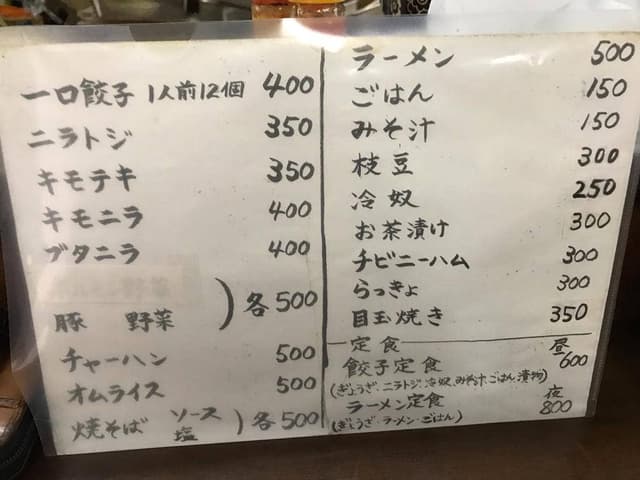 一口餃子 1人前12個 400
ニラトジ 350
キモテキ 350
キモニラ 400
ブタニラ 400
豚 野菜 ) 各500
チャーハン 500
オムライス 500
焼そば ソース 塩 ) 各500
ラーメン 500
ごはん 150
みそ汁 150
枝豆 300
冷奴 250
お茶漬け 300
チビニーハム 300
らっきょ 300
目玉焼き 350
定食 昼
餃子定食 600
(ぎょうざ、ニラトジ、冷奴、みそ汁、ごはん、漬物)
ラーメン定食 夜 800
(ぎょうざ・ラーメン・ごはん)